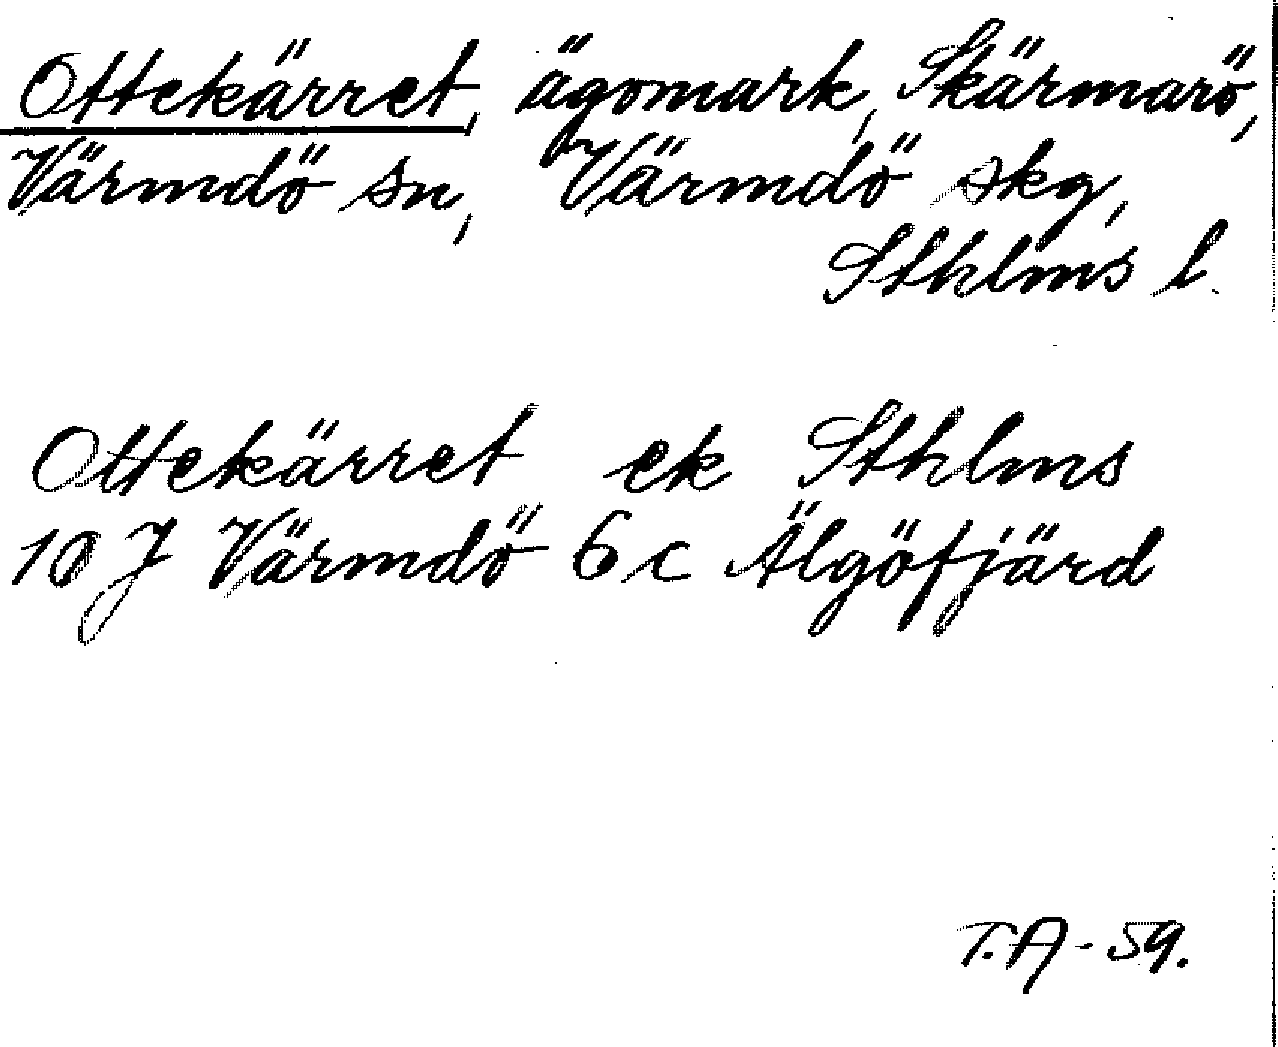 Ottekärret, ägomark, Skärmarö,
Värmdö sn, Värmdö skg,
Sthlms l.
Ottekärret ek Sthlms
10 J Värmdö 6 c Älgöfjärd
T.A - 59.